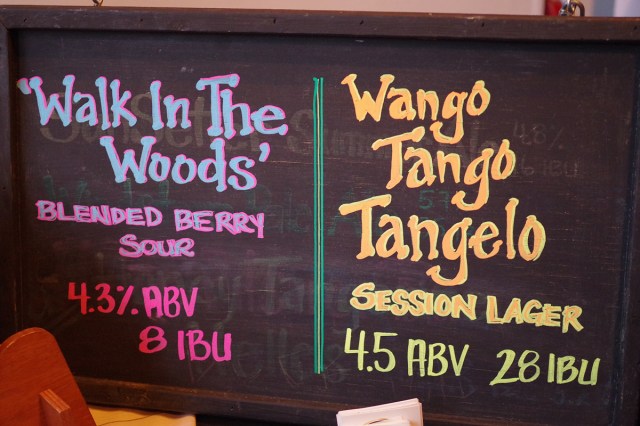 'Walk In The
Woods'
Blended Berry
Sour
4.3% ABV
8 IBU
Wango
Tango
Tangelo
Session Lager
4.5 ABV 28 IBU